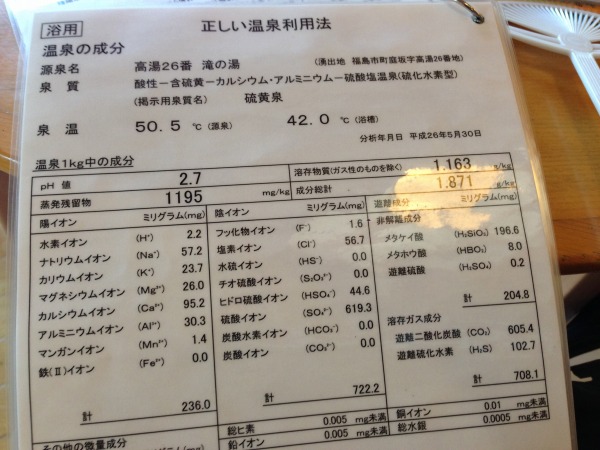 浴用 正しい温泉利用法
温泉の成分
源泉名 高湯26番 滝の湯 (湧出地 福島市町庭坂字高湯26番地)
泉質 酸性-含硫黄-カルシウム・アルミニウム-硫酸塩温泉(硫化水素型)
(掲示用泉質名) 硫黄泉
泉温 50.5 ℃(源泉) 42.0 ℃(浴槽)
分析年月日 平成26年5月30日
温泉1kg中の成分
pH 値 2.7 溶存物質(ガス性のものを除く) 1.163 g/kg
蒸発残留物 1195 mg/kg 成分総計 1.871 g/kg
陽イオン ミリグラム(mg)
水素イオン (H⁺) 2.2
ナトリウムイオン (Na⁺) 57.2
カリウムイオン (K⁺) 23.7
マグネシウムイオン (Mg²⁺) 26.0
カルシウムイオン (Ca²⁺) 95.2
アルミニウムイオン (Al³⁺) 30.3
マンガンイオン (Mn²⁺) 1.4
鉄(Ⅱ)イオン (Fe²⁺) 0.0
計 236.0
陰イオン ミリグラム(mg)
フッ化物イオン (F⁻) 1.6
塩素イオン (Cl⁻) 56.7
水硫イオン (HS⁻) 0.0
チオ硫酸イオン (S₂O₃²⁻) 0.0
ヒドロ硫酸イオン (HSO₄⁻) 44.6
硫酸イオン (SO₄²⁻) 619.3
炭酸水素イオン (HCO₃⁻) 0.0
炭酸イオン (CO₃²⁻) 0.0
計 722.2
遊離成分 ミリグラム(mg)
非解離成分
メタケイ酸 (H₂SiO₃) 196.6
メタホウ酸 (HBO₂) 8.0
遊離硫酸 (H₂SO₄) 0.2
計 204.8
溶存ガス成分
遊離二酸化炭酸 (CO₂) 605.4
遊離硫化水素 (H₂S) 102.7
計 708.1
その他の微量成分
総ヒ素 0.005 mg未満 銅イオン 0.01 mg未満
鉛イオン 0.005 mg未満 総水銀 0.0005 mg未満